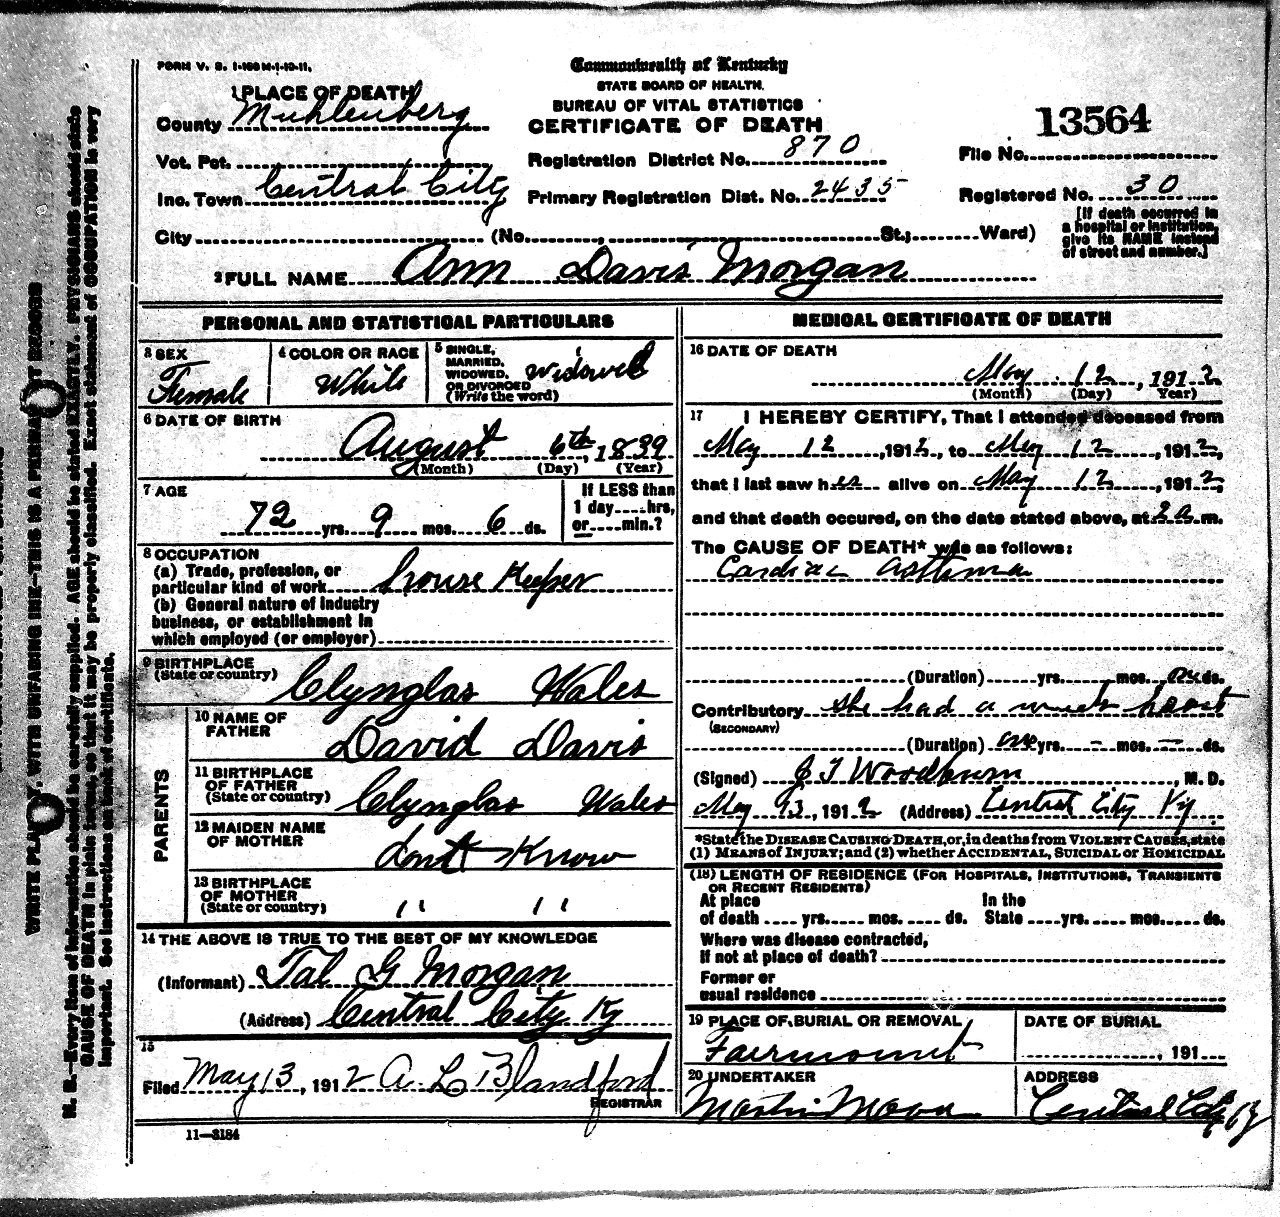 FORM V. S. 1-150 M-1-12-11.
Commonwealth of Kentucky
STATE BOARD OF HEALTH.
BUREAU OF VITAL STATISTICS
CERTIFICATE OF DEATH
1 PLACE OF DEATH
County Muhlenberg
Vot. Pct.
Inc. Town Central City
City (No. , St.; Ward)
Registration District No. 870
Primary Registration Dist. No. 2435
13564
File No.
Registered No. 30
[If death occurred in
a hospital or institution,
give its NAME instead
of street and number.]
2 FULL NAME Ann Davis Morgan
PERSONAL AND STATISTICAL PARTICULARS
3 SEX
Female
4 COLOR OR RACE
White
5 SINGLE,
MARRIED,
WIDOWED,
OR DIVORCED
(Write the word)
Widowed
6 DATE OF BIRTH
August 6th, 1839
(Month) (Day) (Year)
7 AGE
72 yrs. 9 mos. 6 ds.
If LESS than
1 day....hrs,
or....min.?
8 OCCUPATION
(a) Trade, profession, or
particular kind of work house Keeper
(b) General nature of industry
business, or establishment in
which employed (or employer)
9 BIRTHPLACE
(State or country) Clynglas Wales
PARENTS
10 NAME OF
FATHER David Davis
11 BIRTHPLACE
OF FATHER
(State or country) Clynglas Wales
12 MAIDEN NAME
OF MOTHER Dont Know
13 BIRTHPLACE
OF MOTHER
(State or country) " "
14 THE ABOVE IS TRUE TO THE BEST OF MY KNOWLEDGE
(Informant) Tal G Morgan
(Address) Central City Ky
15
Filed May 13, 1912 A L Blandford
REGISTRAR
11—3184
MEDICAL CERTIFICATE OF DEATH
16 DATE OF DEATH
May 12, 1912
(Month) (Day) Year)
17 I HEREBY CERTIFY, That I attended deceased from
May 12, 1912, to May 12, 1912,
that I last saw her alive on May 12, 1912,
and that death occured, on the date stated above, at 2 a m.
The CAUSE OF DEATH* was as follows:
Cardiac asthma
(Duration) yrs. mos. ds.
Contributory She had a weak heart
(SECONDARY)
(Duration) one yrs. – mos. – ds.
(Signed) J T Woodburn, M. D.
May 13, 1912 (Address) Central City Ky.
*State the DISEASE CAUSING DEATH, or, in deaths from VIOLENT CAUSES, state
(1) MEANS of INJURY; and (2) whether ACCIDENTAL, SUICIDAL or HOMICIDAL
(18) LENGTH OF RESIDENCE (FOR HOSPITALS, INSTITUTIONS, TRANSIENTS
OR RECENT RESIDENTS)
At place In the
of death .... yrs. .... mos. .... ds. State .... yrs. .... mos. .... ds.
Where was disease contracted,
If not at place of death?
Former or
usual residence
19 PLACE OF BURIAL OR REMOVAL
Fairmount
DATE OF BURIAL
, 191
20 UNDERTAKER
Martin Moore
ADDRESS
Central City Ky
WRITE PLAINLY, WITH UNFADING INK—THIS IS A PERMANENT RECORD
N. B.—Every item of information should be carefully supplied. AGE should be stated EXACTLY. PHYSICIANS should state
CAUSE OF DEATH in plain terms, so that it may be properly classified. Exact statement of OCCUPATION is very
important. See instructions on back of certificate.